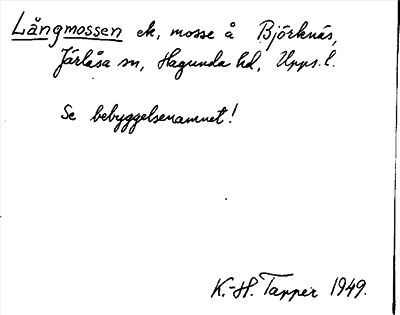 Långmossen ek, mosse å Björknäs,
Järlåsa sn, Hagunda hd, Upps. l.
Se bebyggelsenamnet!
K.-H. Tapper 1949.